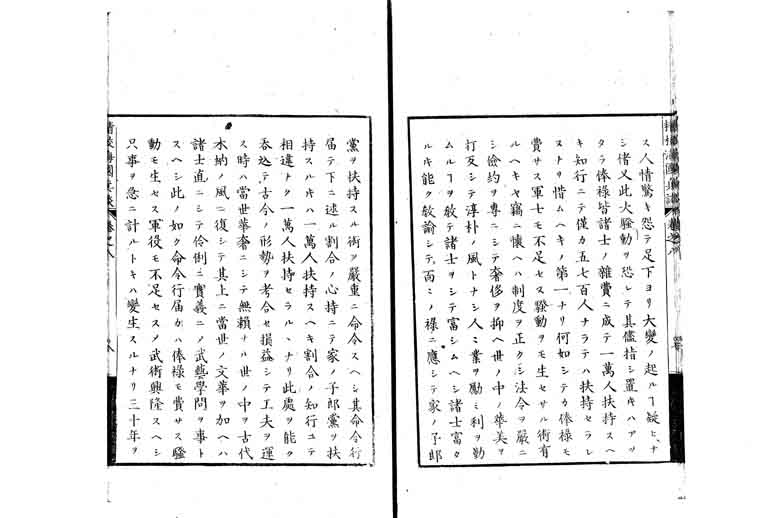 ス人情驚キ怨テ足下ヨリ大變ノ起ルヿ疑ヒナ
シ偖又此大騷動ヲ恐レテ其儘指シ置キハアツ
タラ俸禄皆諸士ノ雜費ニ成テ一萬人扶持スヘ
キ知行ニテ僅カ五七百人ナラテハ扶持セラレ
ストリ惜ムヘキノ第一ナリ何如シテカ俸禄モ
費サス軍士モ不足セス騷動ヲモ生セサル術有
ルヘキヤ竊ニ懷ヘハ制度ヲ正クシ法令ヲ嚴ニ
シ儉約ヲ專ニシテ奢侈ヲ抑ヘ世ノ中ノ華美ヲ
打反シテ淳朴ノ風トナシ人ミ業ヲ勵ミ利ヲ勤
ムルヿヲ敎テ諸士ヲシテ富シムヘシ諸士富タ
ルキ能ク敎諭シテ面ミノ禄ニ應シテ家ノ子郎
黨ヲ扶持スル術ヲ嚴重ニ命令スヘシ其命令行
届テ下ニ述ル割合ノ心持ニテ家ノ子郎黨ヲ扶
持スルキハ一萬人扶持スヘキ割合ノ知行ユテ
相違ナク一萬人扶持セラルヽナリ此處ヲ能ク
呑込テ古今ノ形勢ヲ考合セ損益シテ工夫ヲ運
ス時ハ當世華奢ニシテ無賴ナル世ノ中ヲ古代
木納ノ風ニ復シテ其上ニ當世ノ文華ヲ加ヘハ
諸士直ニシテ伶俐ニ實義ニノ武藝學問ヲ事ト
スヘシ此ノ如ク命令行届カハ俸禄モ費サス騷
動モ生セス軍役モ不足セスノ武術興隆スヘシ
只事ヲ急ニ計ルトキハ變生スルナリ三十年ヲ
精校海國兵談 卷之八